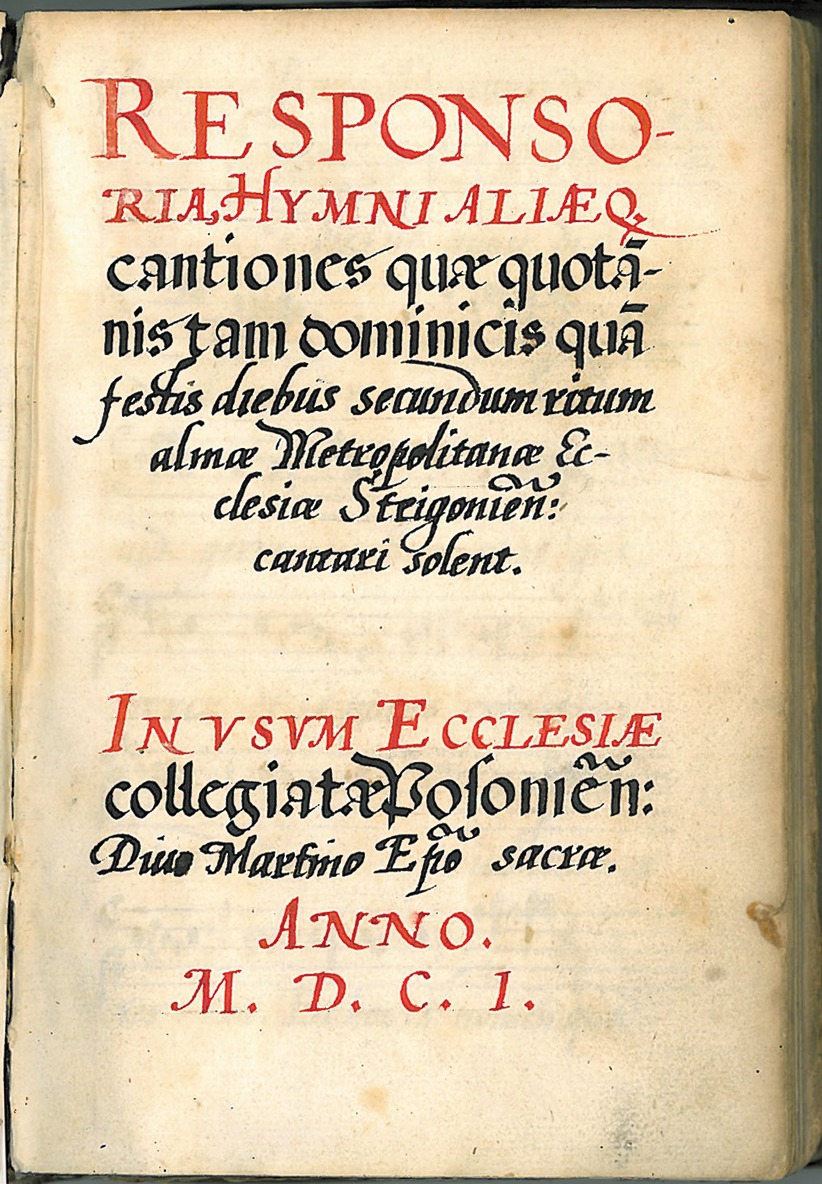 RESPONSO-
RIA, HYMNI ALIÆQ;
cantiones quæ quotā-
nis tam dominicis quā
festis diebus secundum ritum
almæ Metropolitanæ Ec-
clesiæ Strigonien̄:
cantari solent.
IN VSVM ECCLESIÆ
collegiatæ Posonien̄:
Diuo Martino Ep̄o sacræ.
ANNO.
M. D. C. I.